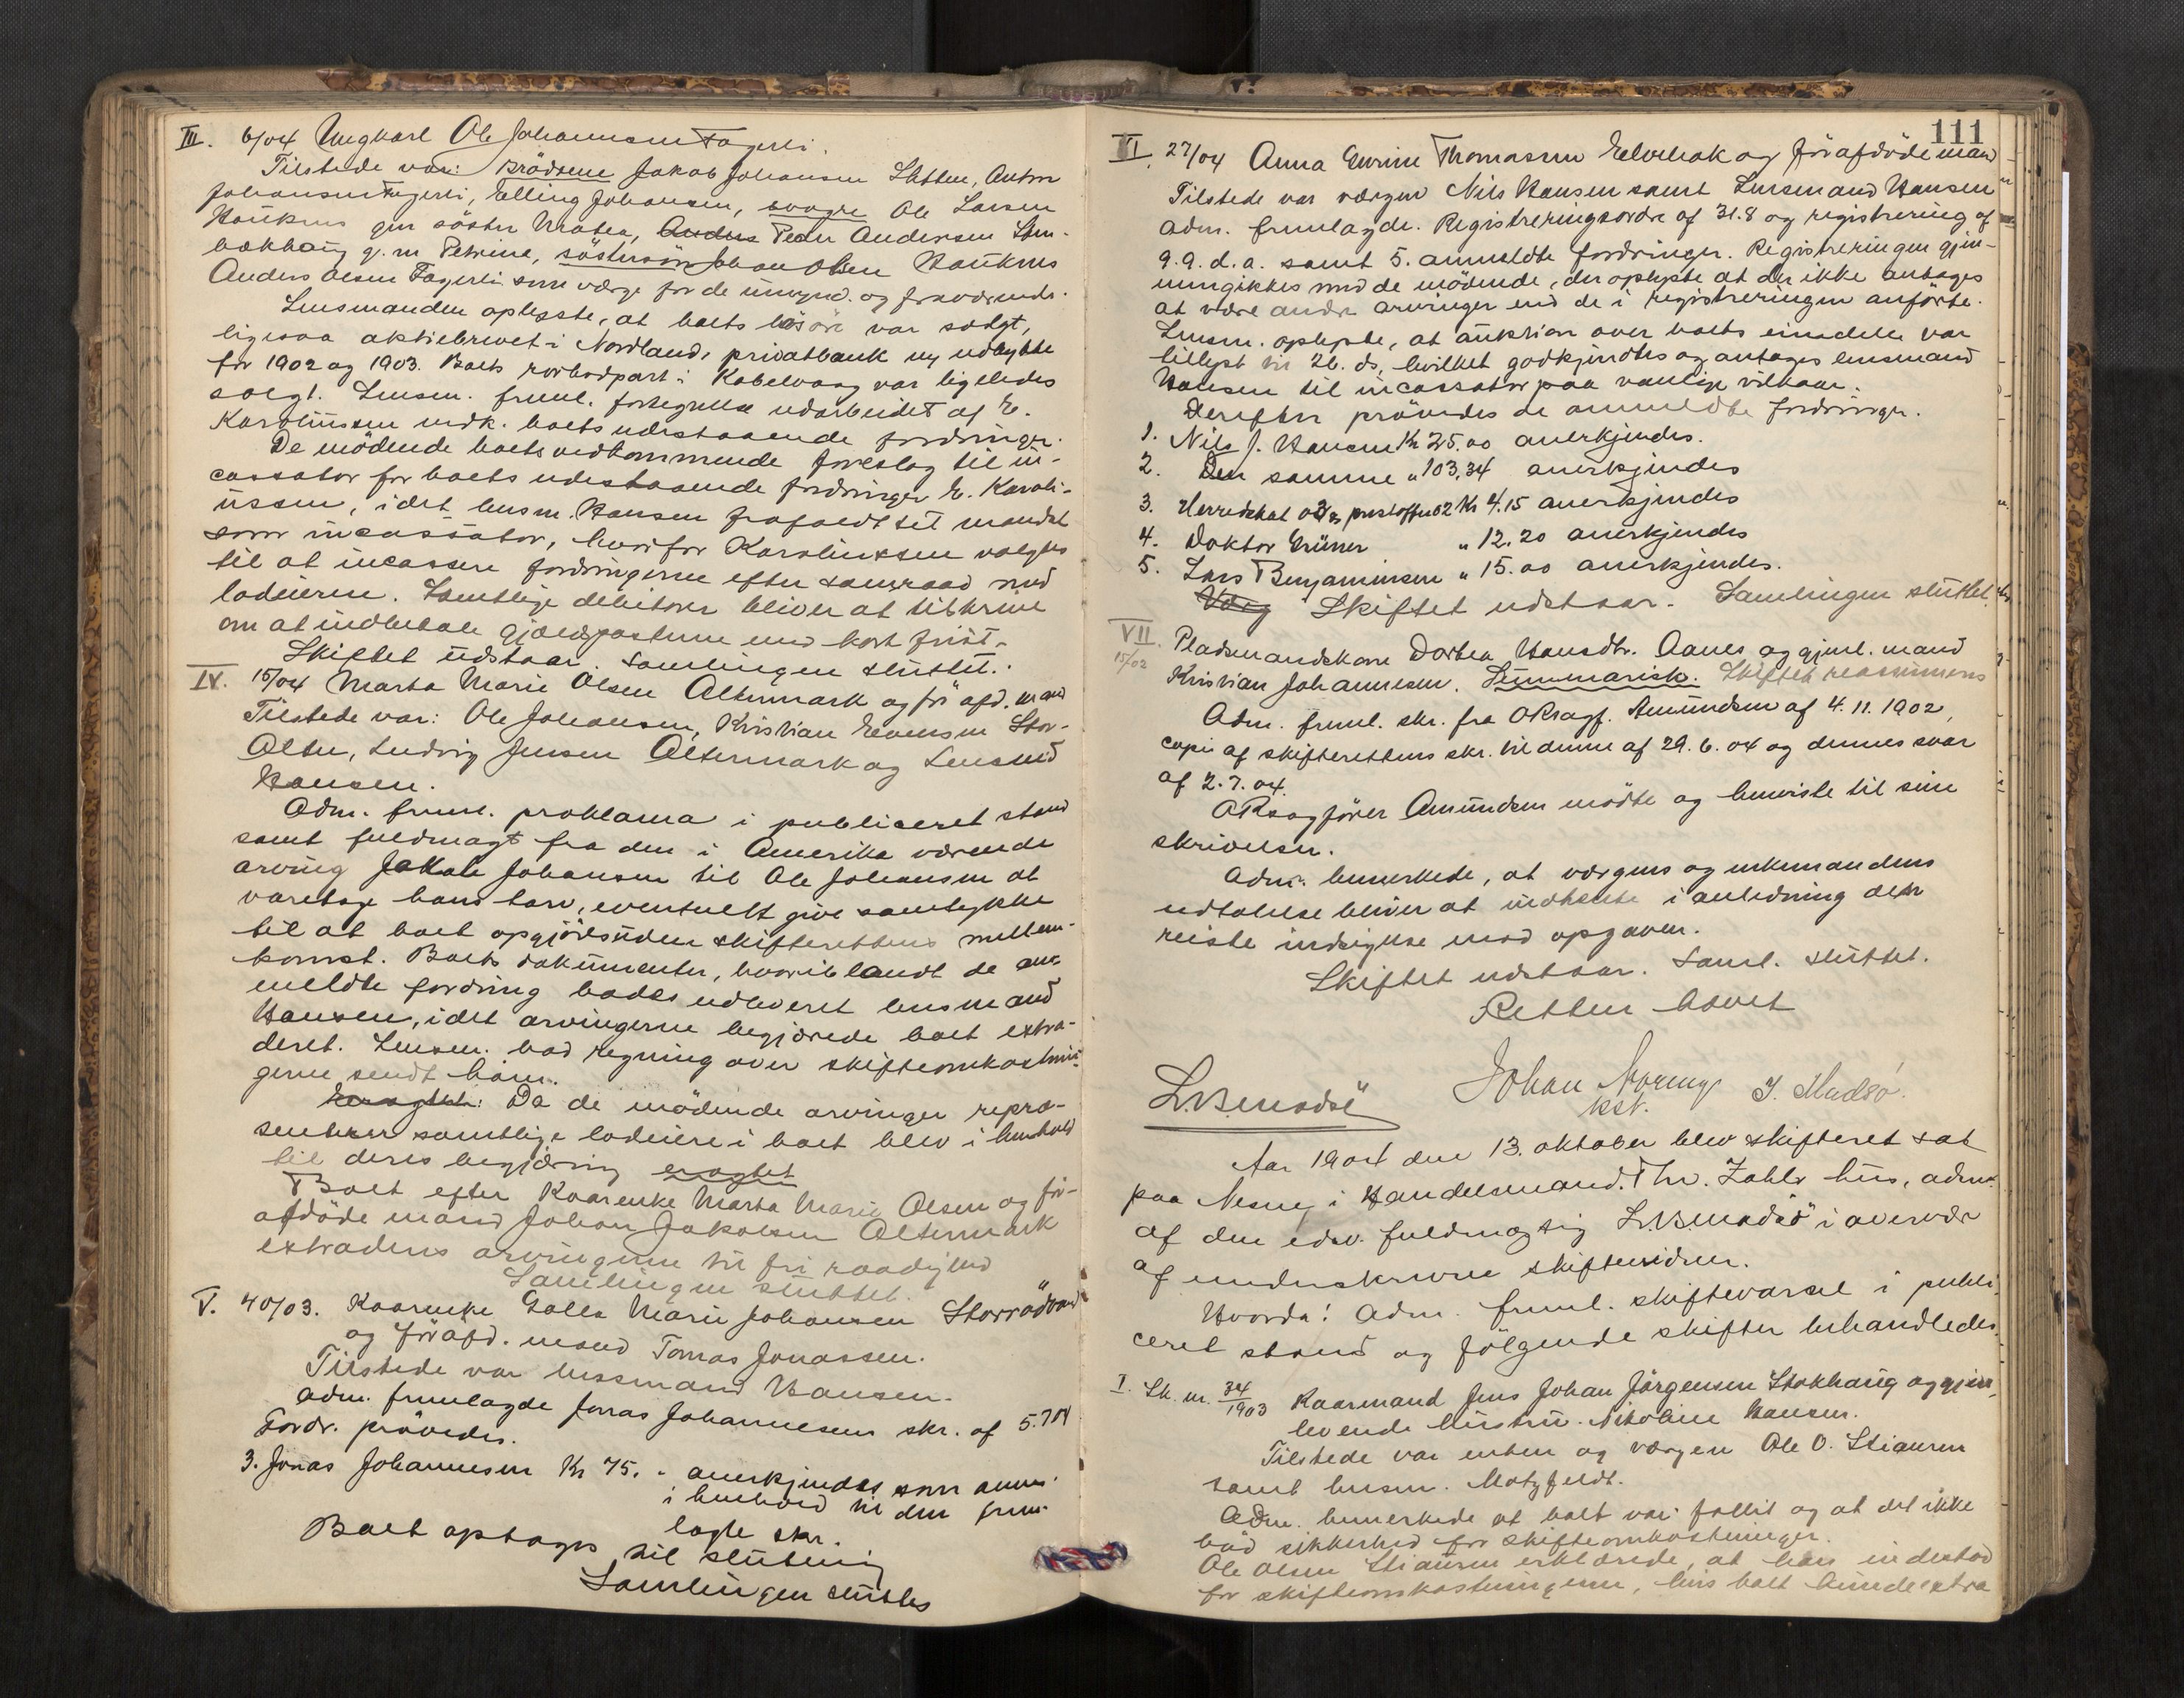 III. 6/04 Ungkarl Ole Johannesen Fagerli.
Tilstede var: Brödrene Jakob Johansen Sletten, Anton
Johansen Fagerli, Elling Johansen, svogre Ole Larsen
Hauknes gm söster Matea, Anders Peder Andersen Sten-
bækhaug g. m Petrine, söstersön Johan Olsen Hauknes
Anders Olsen Fagerli som værge for de umynd. og fraværende.
Lensmanden oplyste, at boets lösöre var solgt,
ligesaa aktiebrevet i Nordland, privatbank og udbytte
for 1902 og 1903. Boets rorbodpart i Kabelvaag var ligeledes
solgt. Lensm. freml. fortegnelse udarbeidet af E.
Karoliussen vedk. boets udestaaende fordringer.
De mödende boets vedkommende foreslog til in-
cassator for boets udestaaende fordringer E. Karoli-
ussen, idet lensm. Hansen frafaldt sit mandat
som incassator, hvorfor Karoliussen valgtes
til at incassere fordringerne efter samraad med
lodeieren. Samtlige debitorer bliver at tilskrive
om at indbetale gjældsposterne med kort frist.
Skiftet udstaar. Samlingen sluttet.
IV. 15/04 Marta Marie Olsen Altermark og för afd. mand
Tilstede var: Ole Johansen, Kristian Evensen Stor-
Alter, Ludvig Jensen Altermark og Lensmd
Hansen.
Adm. freml. proklama i publiceret stand
samt fuldmagt fra den i Amerika værende
arving Jakob Johansen til Ole Johansen at
varetage hans tarv, eventuelt give samtykke
til at boet opgjöres uden skifterettens mellem-
komst. Boets dokumenter, hvoriblandt de an-
meldte fordring bades udleveret lensmand
Hansen, idet arvingerne begjærede boet extra-
deret. Lensm. bad regning over skifteomkostnin-
gerne sendt ham.
Eragtet: Da de mödende arvinger repræ-
senterer samtlige lodeiere i boet blev i henhold
til deres begjæring eragtet
Boet efter Kaarenke Marta Marie Olsen og för-
afdöde mand Johan Jakobsen Altermark
extraderes arvingerne til fri raadighed
Samlingen sluttet.
V. 40/03. Kaarenke Golla Marie Johansen Storrödvand
og för afd. mand Tomas Jonassen.
Tilstede var lensmand Hansen.
Adm. fremlagde Jonas Johannesens skr. af 5.7 04
Fordr. prövedes.
3. Jonas Johannesen Kr 75. - anerkjendes som anm.
i henhold til den frem-
lagte skr.
Boet optages til slutning
Samlingen sluttes
111
VI. 27/04 Anna Thomassen Elvebak og för afdöde mand
Tilstede var værgen Nils Hansen samt Lensmand Hansen
Adm. fremlagde. Registreringsordre af 31.8 og registrering af
9.9. d.a. samt 5. anmeldte fordringer. Registreringen gjen-
nemgikkes med de mödende, der oplyste at der ikke antages
at være andre arvinger end de i registreringen anförte.
Lensm. oplyste, at auktion over boets eiendele var
tillyst til 26. ds, hvilket godkjendtes og antages lensmand
Hansen til incassator paa vanlige vilkaar.
Derefter prövedes de anmeldte fordringer.
1. Nils J. Hansen Kr 25.00 anerkjendes.
2. Den samme " 103,34 anerkjendes
3. Herredskat 03 02 Kr 4.15 anerkjendes
4. Doktor Grüner " 12.20 anerkjendes
5. Lars Benjaminsen " 15.00 anerkjendes.
Værg Skiftet udstaar. Samlingen sluttet.
VII. Pladsmandskone Dortea Hansdtr. Aanes og gjenl. mand
15/02 Kristian Johannesen. Summarisk. Skiftet reassumeres
Adm. freml. skr. fra ORsagf. Amundsen af 4.11.1902,
copi af skifterettens skr. til denne af 29.6.04 og dennes svar
af 2.7.04.
ORsagförer Amundsen mödte og henviste til sine
skrivelser.
Adm. bemerkede, at værgens og enkemandens
udtalelse bliver at indhente i anledning den
reiste indsigelse mod opgaven.
Skiftet udstaar. Saml. sluttet.
Retten hævet
L.B.Madsö Johan Norum I. Madsö.
kst.
Aar 1904 den 13. oktober blev skifteret sat
paa Nesne, i Handelsmand. Thv. Zahls hus, adm.
af den edsv. fuldmægtig L.B.Madsö i overvær
af underskrevne skiftevidner.
Hvorda: Adm. freml. skiftevarsel i publi-
ceret stand og fölgende skifter behandledes.
I. Sk. nr. 34/1903 Kaarmand Jens Johan Jörgensen Stokhaug og gjen-
levende hustru. Nikoline Hansen.
Tilstede var enken og værgen Ole O. Stiauren
samt lensm. Motzfeldt.
Adm. bemerkede at boet var fallit og at det ikke
böd sikkerhed for skifteomkostninger.
Ole Olsen Stiauren erklærede, at han indestod
for skifteomkostningerne, hvis boet kunde extra